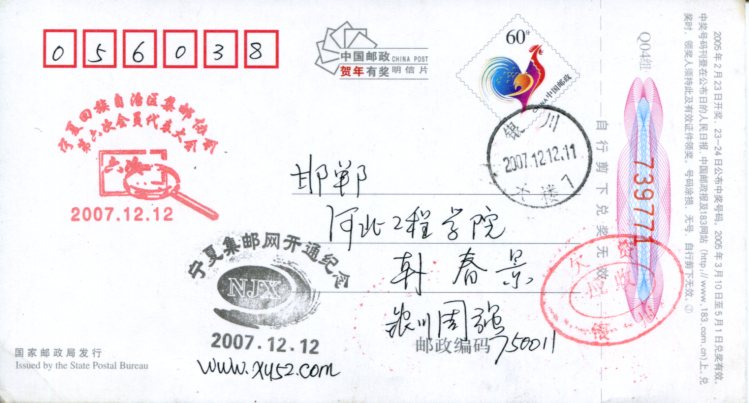 056038
中国邮政 CHINA POST
贺年有奖 明信片
60分
CHINA 中国邮政
Q04组
宁夏回族自治区集邮协会
第六次会员代表大会
六
2007.12.12
银川
2007.12.12.11
邯郸
河北工程学院
春景
银川周强
邮政编码 750011
宁夏集邮网开通纪念
NJX
2007.12.12
www.xy52.com
国家邮政局发行
Issued by the State Postal Bureau
自行剪下兑奖无效
739771
欠资
应收
2005年2月23日开奖，23-24日公布中奖号码，2005年3月10日至5月1日兑奖有效。
中奖号码刊登在公布日的人民日报、中国邮政报及183网站（http://www.183.com.cn)上，兑
奖时，领奖人须持此及有效证件领奖，号码涂损、无号、自行剪下无效。